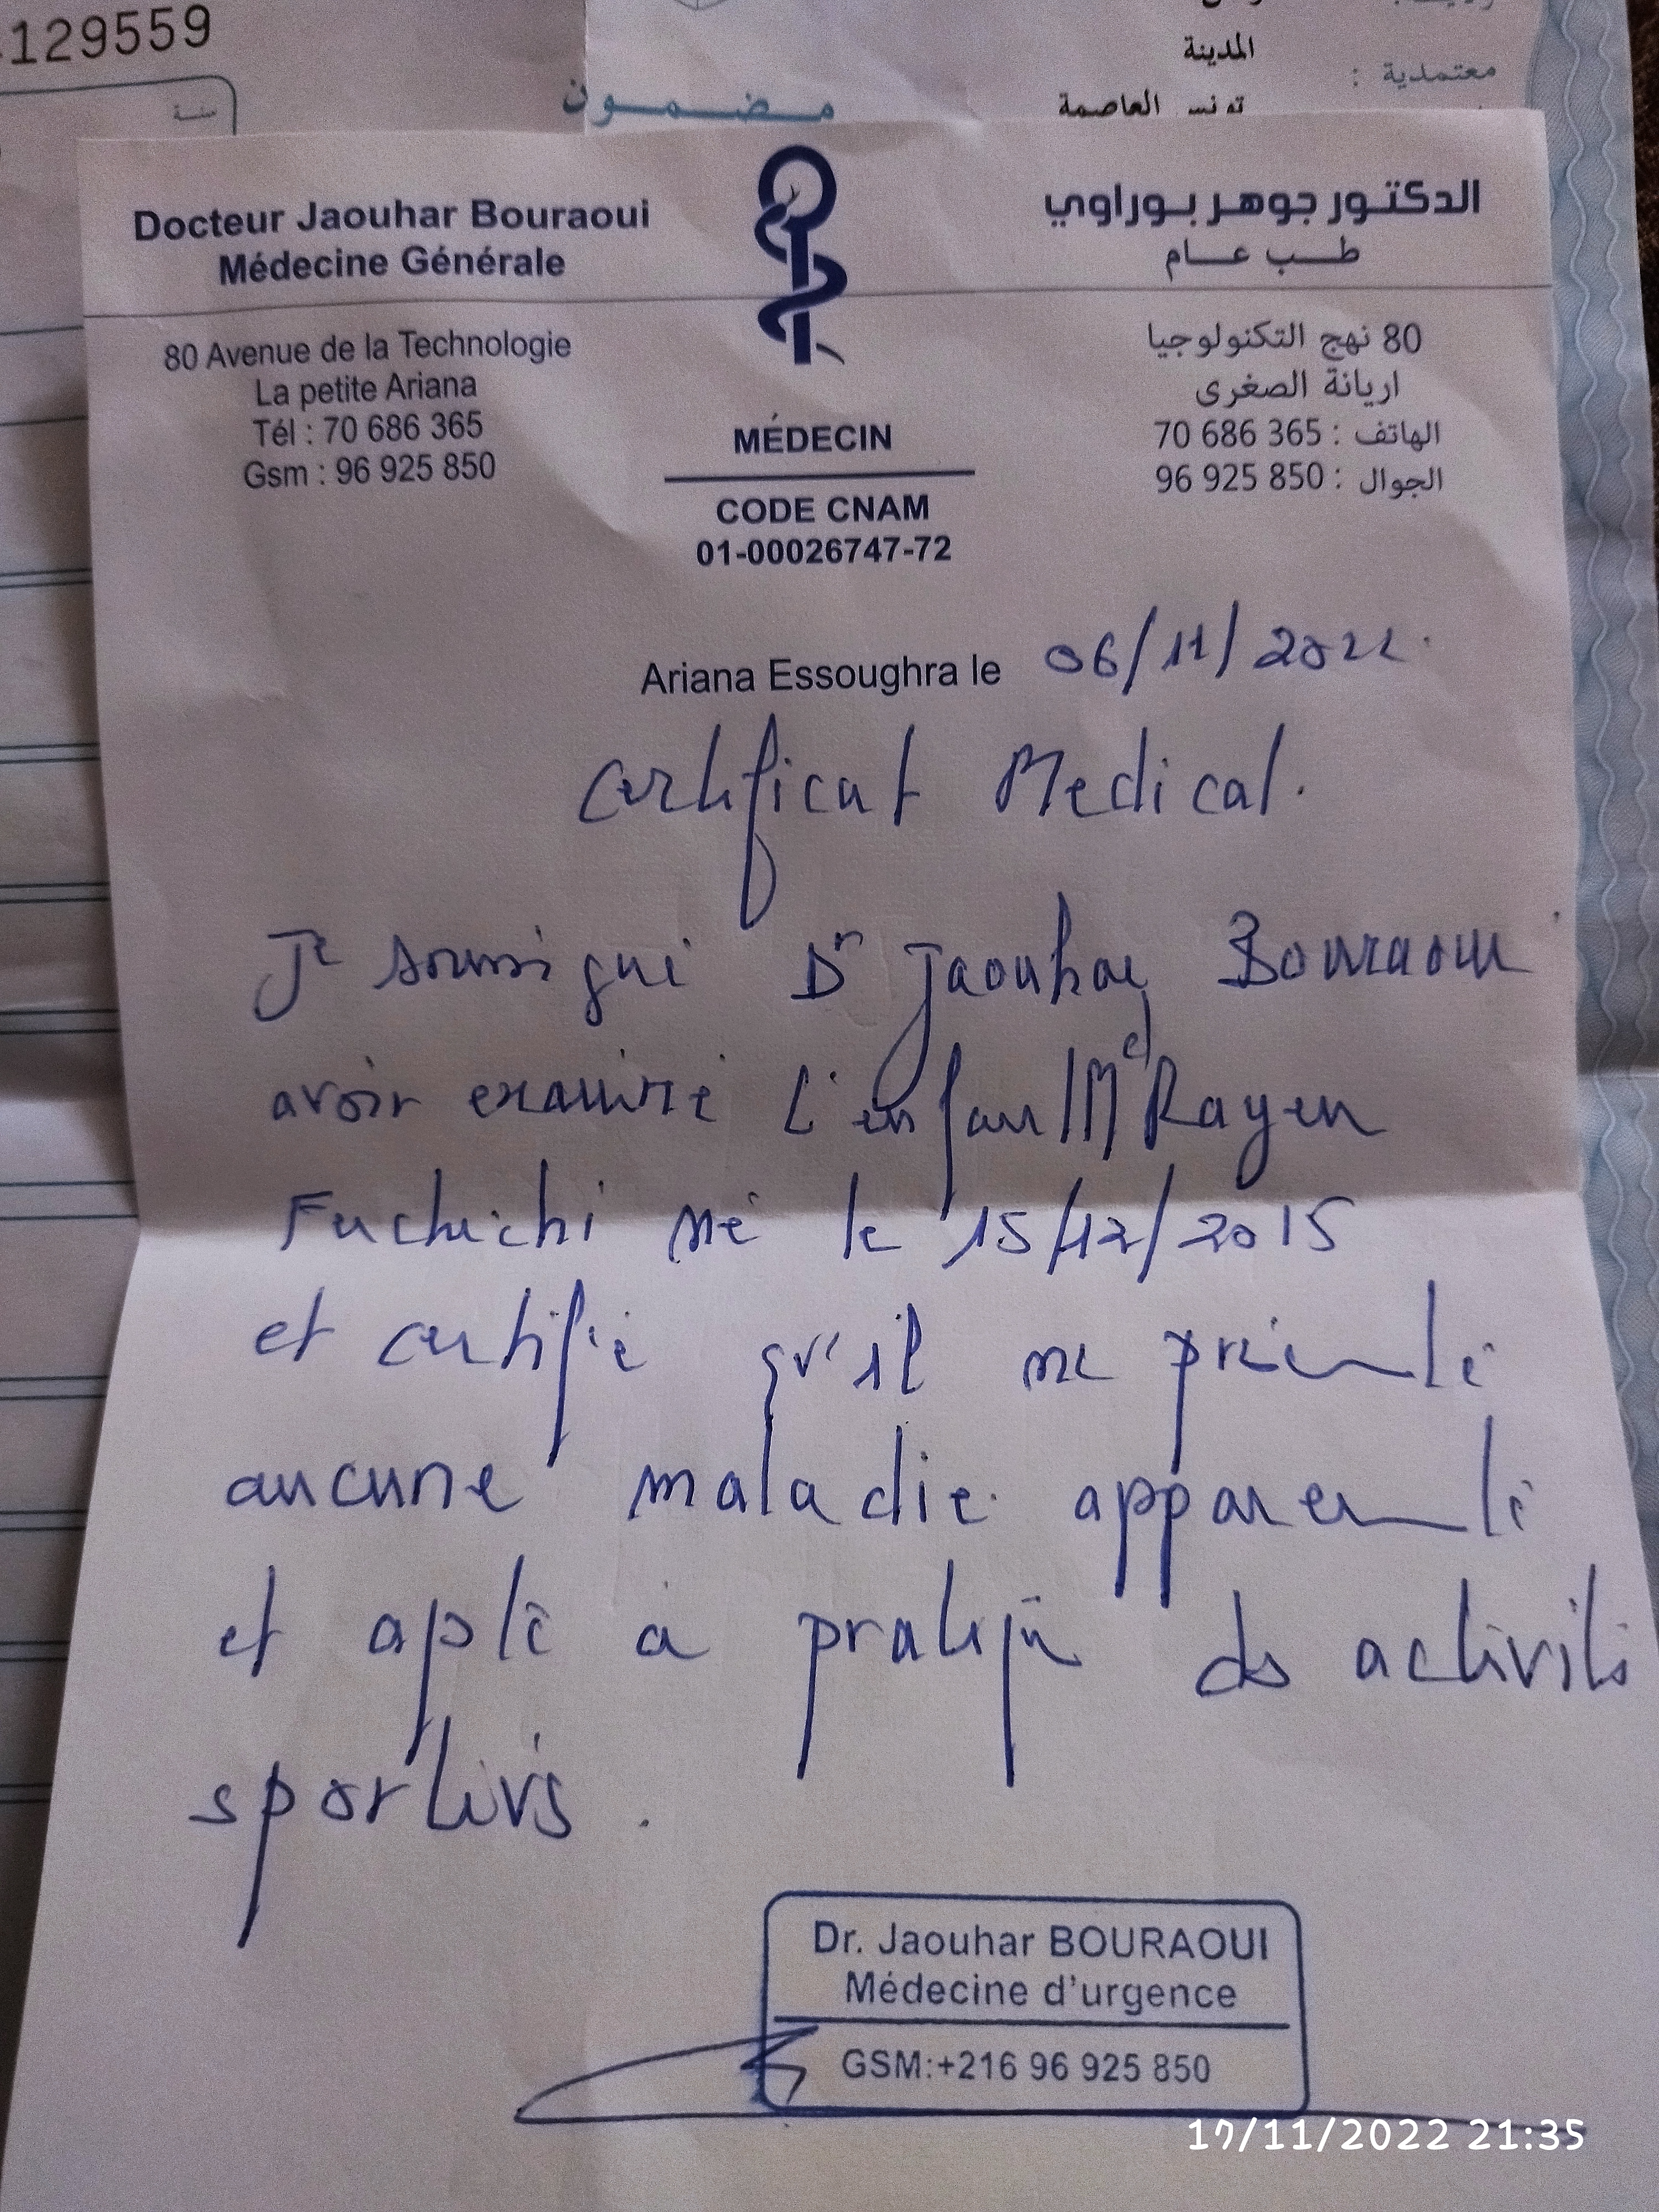 129559
سنة
المدينة
معتمدية :
مضمون
تونس العاصمة
Docteur Jaouhar Bouraoui
Médecine Générale
الدكتور جوهر بوراوي
طب عام
80 Avenue de la Technologie
La petite Ariana
Tél : 70 686 365
Gsm : 96 925 850
MÉDECIN
CODE CNAM
01-00026747-72
80 نهج التكنولوجيا
اريانة الصغرى
الهاتف : 70 686 365
الجوال : 96 925 850
Ariana Essoughra le 06/11/2022.
Certificat Medical.
Je soussigné Dr Jaouhar Bouraoui
avoir examiné l'enfant Md Rayen
né le 15/12/2015
et certifie qu'il ne présente
aucune maladie apparente
et apte à pratiquer des activités
sportives.
Dr. Jaouhar BOURAOUI
Médecine d'urgence
GSM:+216 96 925 850
17/11/2022 21:35